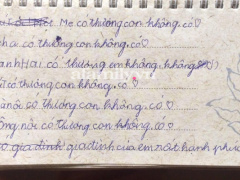 Mẹ có thương con không. có ♡
cha có thương con không. có ♡
anh Hai có thương em không. không
có thương con không. có ♡
nội có thương con không. có ♡
ông nội có thương con không. có ♡
gia đình gia đình của em rất hạnh phúc